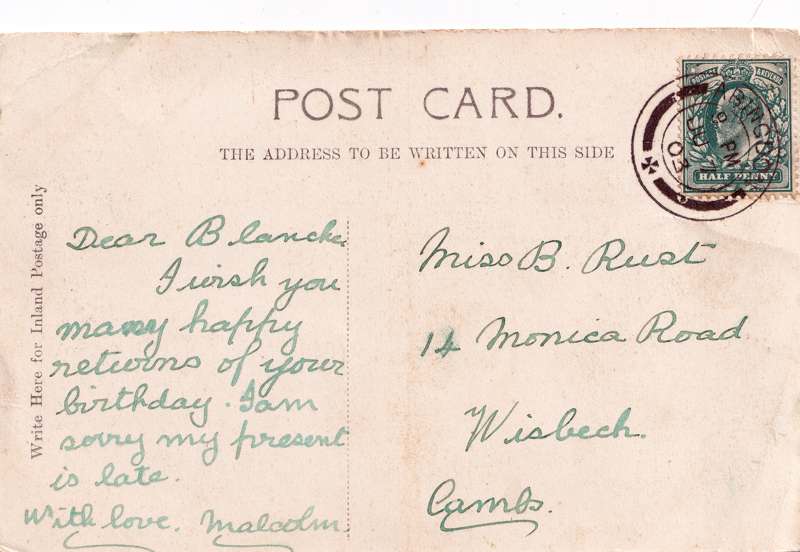 POST CARD.
THE ADDRESS TO BE WRITTEN ON THIS SIDE
POSTAGE REVENUE
HALF PENNY
ABINGDON
PM
03
Write Here for Inland Postage only
Dear Blanche
I wish you
many happy
returns of your
birthday. I am
sorry my present
is late.
With love. Malcolm.
Miss B. Rust
14 Monica Road
Wisbech.
Cambs.